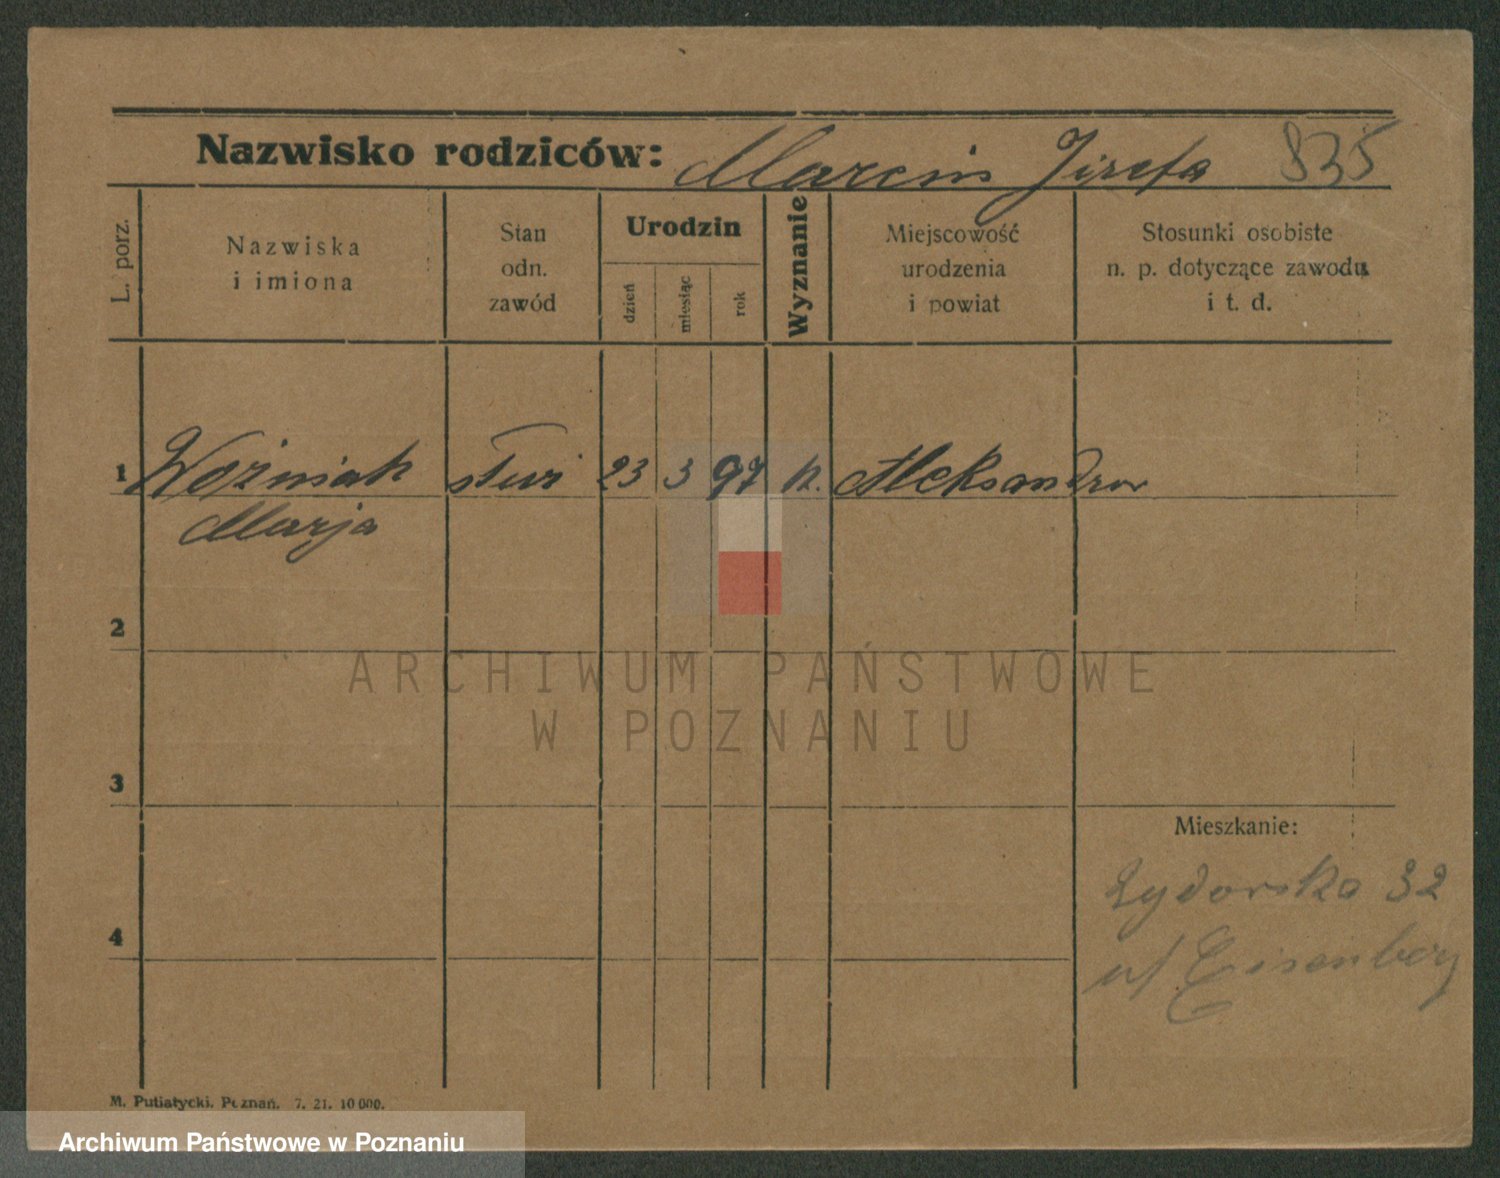 Nazwisko rodziców: Marcin Józefa 835
L. porz.
Nazwiska
i imiona
Stan
odn.
zawód
Urodzin
dzień
miesiąc
rok
Wyznanie
Miejscowość
urodzenia
i powiat
Stosunki osobiste
n. p. dotyczące zawodu
i t. d.
1 Woźniak 23 3 97 k. Aleksandrow
Marja
2
3
4
Mieszkanie:
32
u/ Eisenberg
M. Putiatycki. Poznań. 7. 21. 10 000.
ARCHIWUM PAŃSTWOWE
W POZNANIU
Archiwum Państwowe w Poznaniu